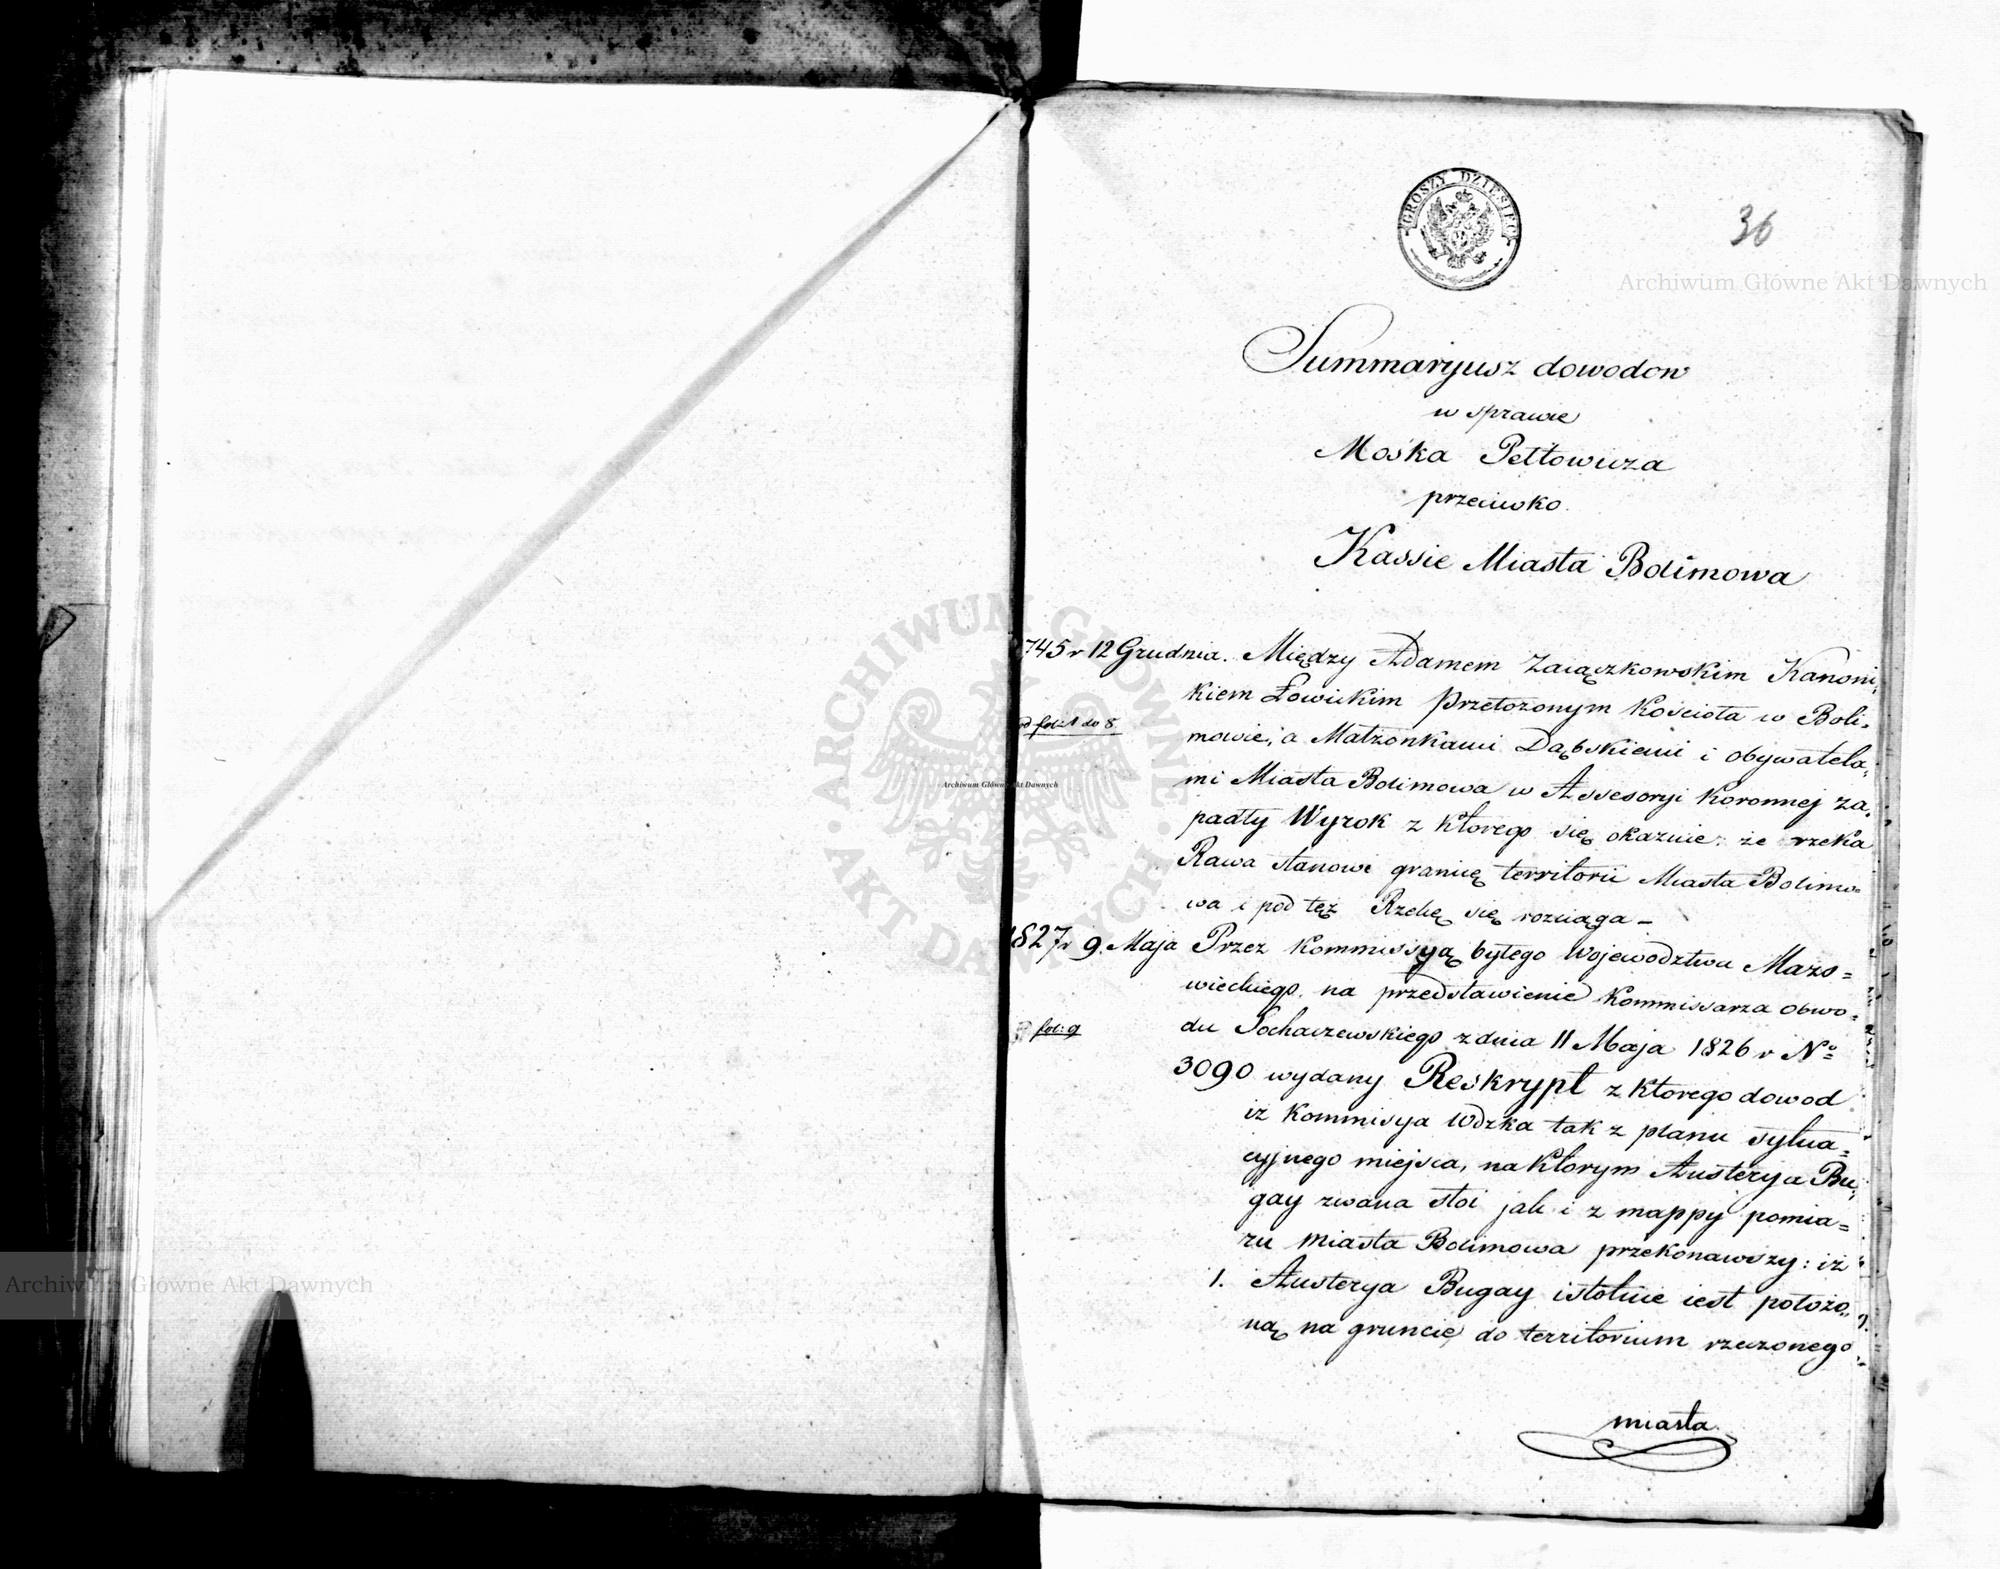 GROSZY DZIESIĘĆ
36
Archiwum Główne Akt Dawnych
Summaryusz dowodow
w sprawie
Mośka Peltowicza
przeciwko
Kassie Miasta Bolimowa
1745 r 12 Grudnia. Między Adamem Zaiączkowskim Kanoni=
kiem Łowickim Przełożonym Kościoła w Boli=
od fol: 1 do 8.
mowie, a Małżonkami Dąbskiemi i obywatela=
mi Miasta Bolimowa w Assesoryi Koronnej za=
padły Wyrok z którego się okazuie: że rzeka
Rawa stanowi granicę territorii Miasta Bolimo=
wa i pod też Rzekę się rozciąga –
1827 r 9 Maja Przez Kommissyą byłego Wojewodztwa Mazo=
wieckiego na przedstawienie Kommissarza obwo=
fol: 9
du Sochaczewskiego z dnia 11 Maja 1826 r No
3090 wydany Reskrypt z ktorego dowod
iż Kommisya Wdzka tak z planu sytua=
cyjnego miejsca, na którym Austerya Bu=
gay zwana stoi jak i z mappy pomia=
ru miasta Bolimowa przekonawszy: iż
1. Austerya Bugay istotnie iest położo=
ną na gruncie do territorium rzeczonego
miasta
ARCHIWUM GŁÓWNE AKT DAWNYCH
Archiwum Główne Akt Dawnych
Archiwum Główne Akt Dawnych